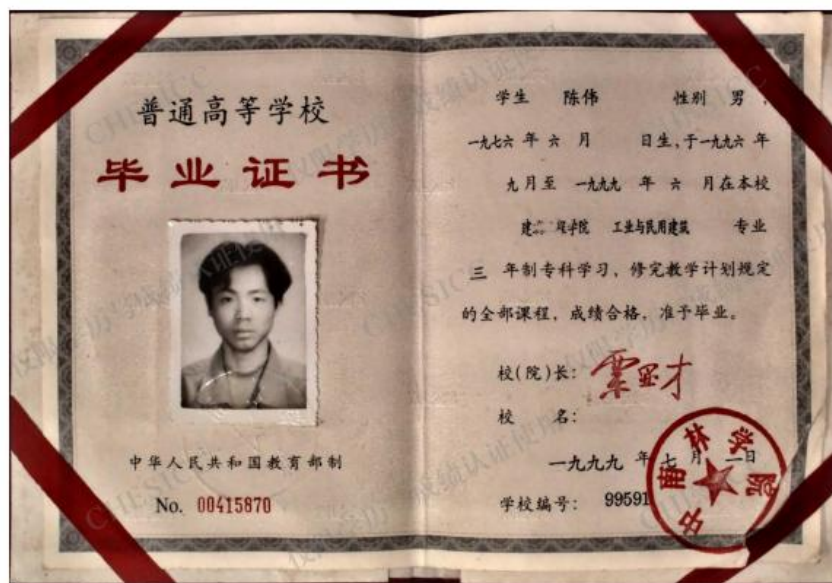 普通高等学校
毕业证书
中华人民共和国教育部制
No. 00415870
学生 陈伟 性别 男,
一九七六 年 六 月 日生,于一九九六 年
九 月至 一九九九 年 六 月在本校
建 学院 工业与民用建筑 专业
三 年制专科学习, 修完教学计划规定
的全部课程, 成绩合格, 准予毕业。
校(院)长:
校 名:
一九九九 年 七 月 一日
学校编号: 99591
中南林学院
CHESICC